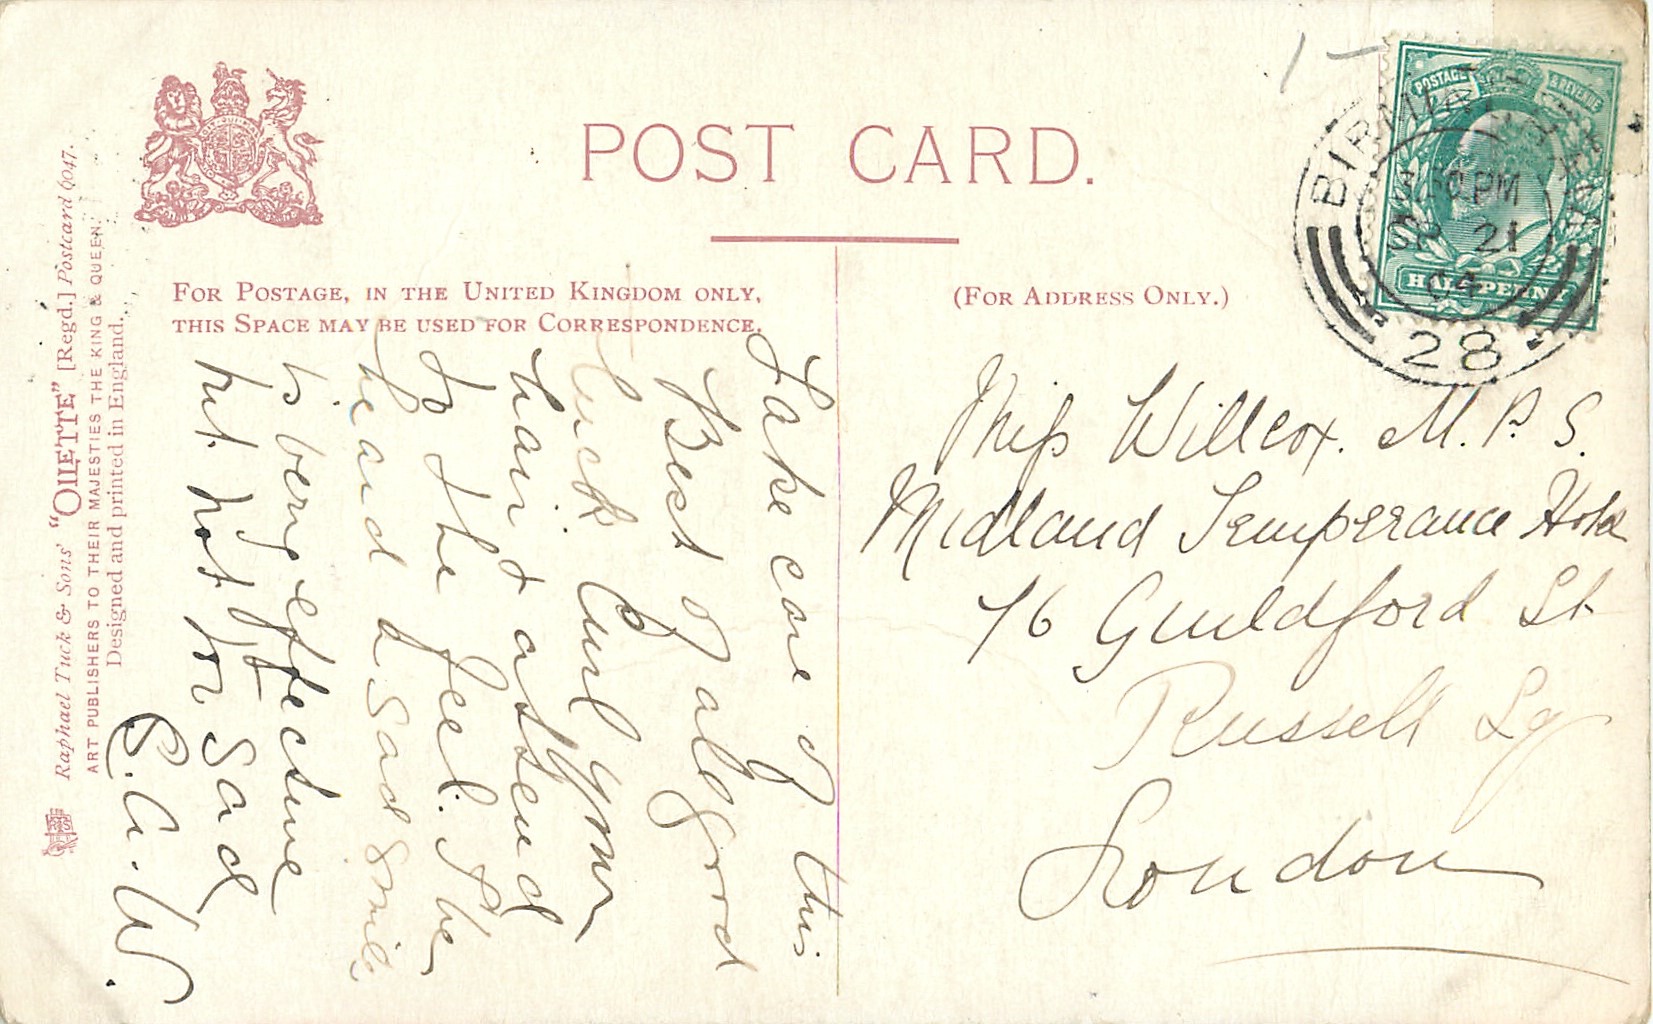 POST CARD.
FOR POSTAGE, IN THE UNITED KINGDOM ONLY,
THIS SPACE MAY BE USED FOR CORRESPONDENCE.
(FOR ADDRESS ONLY.)
Raphael Tuck & Sons' "OILETTE" [Regd.] Postcard 6047.
ART PUBLISHERS TO THEIR MAJESTIES THE KING & QUEEN.
Designed and printed in England.
POSTAGE & REVENUE
HALFPENNY
BIRMINGHAM
PM
SP 21
04
28
Take care of this
Best of all good
luck Curl your
hair & attend
to the feet. The
head & sad smile
is being effective
but not for sad
E. A. W.
Miss Willcox. M. P. S.
Midland Temperance Hotel
76 Guildford St
Russell Sq
London